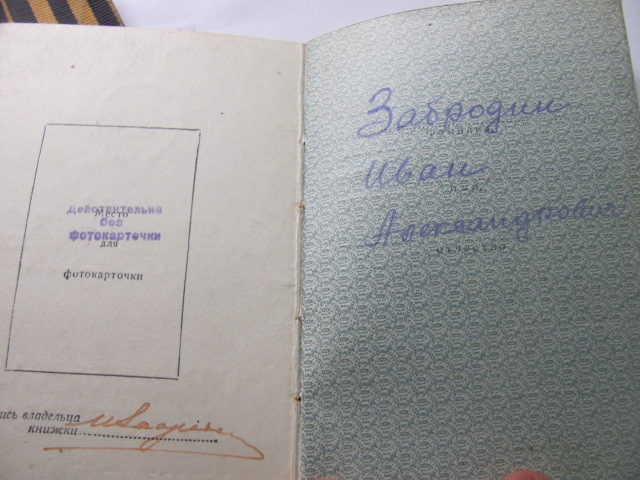 Место
для
фотокарточки
Действительно
без
фотокарточки
ись владельца
книжки
Забродин
фамилия
Иван
имя
Александрович
отчество